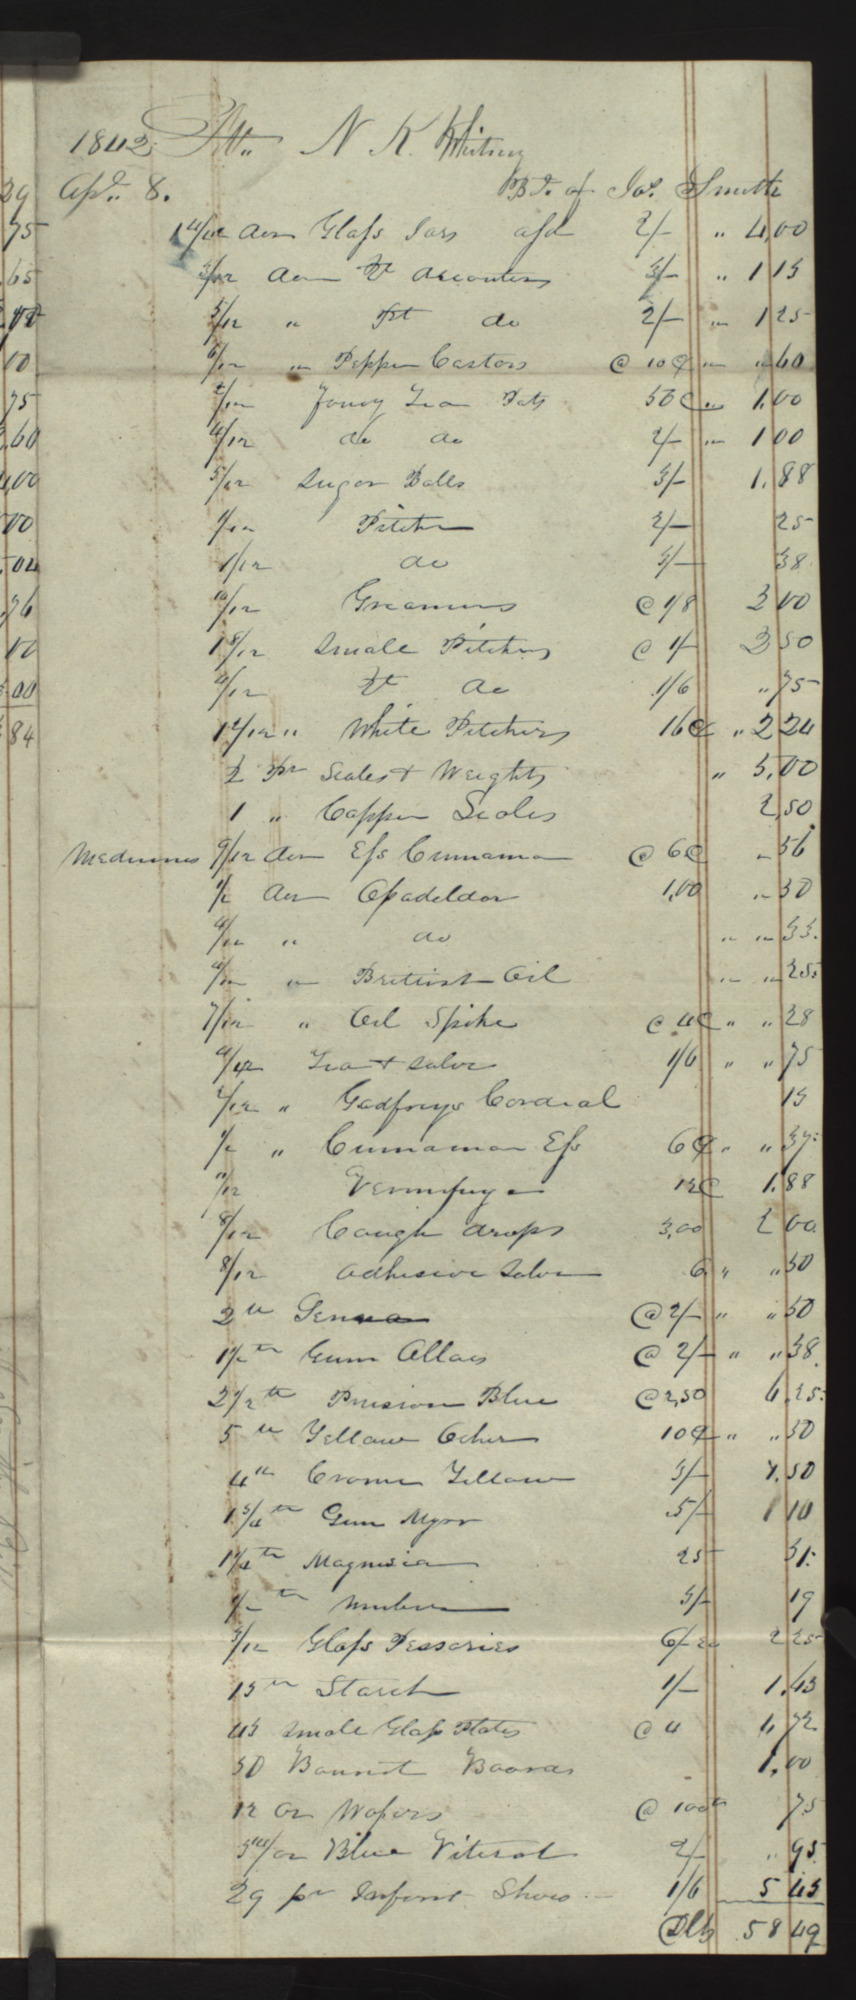 39
75
65
00
75
3,60
00
00
,04
,76
00
,00
84
1842 N K Whitney
Apl. 8. Bt. of Jos. Smith
1 4/12 doz Glass Jars asd 2/- " 4,00
3/12 doz qt decanters 3/- " 1 13
5/12 " Pt do 2/- " 1 25
6/12 " Pepper Castors @ 10¢ " " 60
2/12 Fancy Tea Pots 50¢ " 1,00
4/12 do do 2/- " 1 00
5/12 Sugar Bolls 3/- 1,88
1/12 Pitcher 2/- 25
1/12 do 3/- 38
/12 Creamers @ 1/8 3 00
1 8/12 Small Pitchers @ 1/ 2 50
4/12 qt do 1/6 " 75
1 2/12 " White Pitchers 16¢ " 2 24
2 pr Scales & Weights " 3,00
1 " Copper Scales 2,50
Medicines 9/12 doz Ess Cinnamon @ 6¢ " 56
1/2 doz Opadeldoc 1,00 " 50
4/12 " do " " 33
4/12 " Brittish Oil " " 25
7/12 " Oil Spike @ 4¢ " " 28
4/12 Tea & Salve 1/6 " " 75
2/12 " Godfreys Cordial 13
1/2 " Cinnamon Ess 6¢ " " 37
/12 Vermifuge 12¢ 1,88
8/12 Cough drops 3,00 2 00
8/12 adhesive Salve 6 " " 50
2 lb Senna @ 2/- " " 50
1 1/2 lb Gum Alloes @ 2/- " " 38
2 1/2 lb Prusion Blue @ 2,50 6,25
5 lb Yellow Ocher 10¢ " " 50
4 lb Crome Yellow 3/- 1,50
1 3/4 lb Gum Myrr 5/- 1 10
1 1/4 lb Magnesia 25 31
1/2 lb 3/- 19
3/12 Glass Pessories 6/ 2 25
13 lb Starch 1/- 1,63
43 small Glass Plates @ 4 1,72
50 Bonnet Boards 1,00
12 oz Wafers @ 100 lb 75
3 oz Blue Viterol 2/- " 95
29 pr Infant Shoes 1/6 5 43
Dlls 58 49